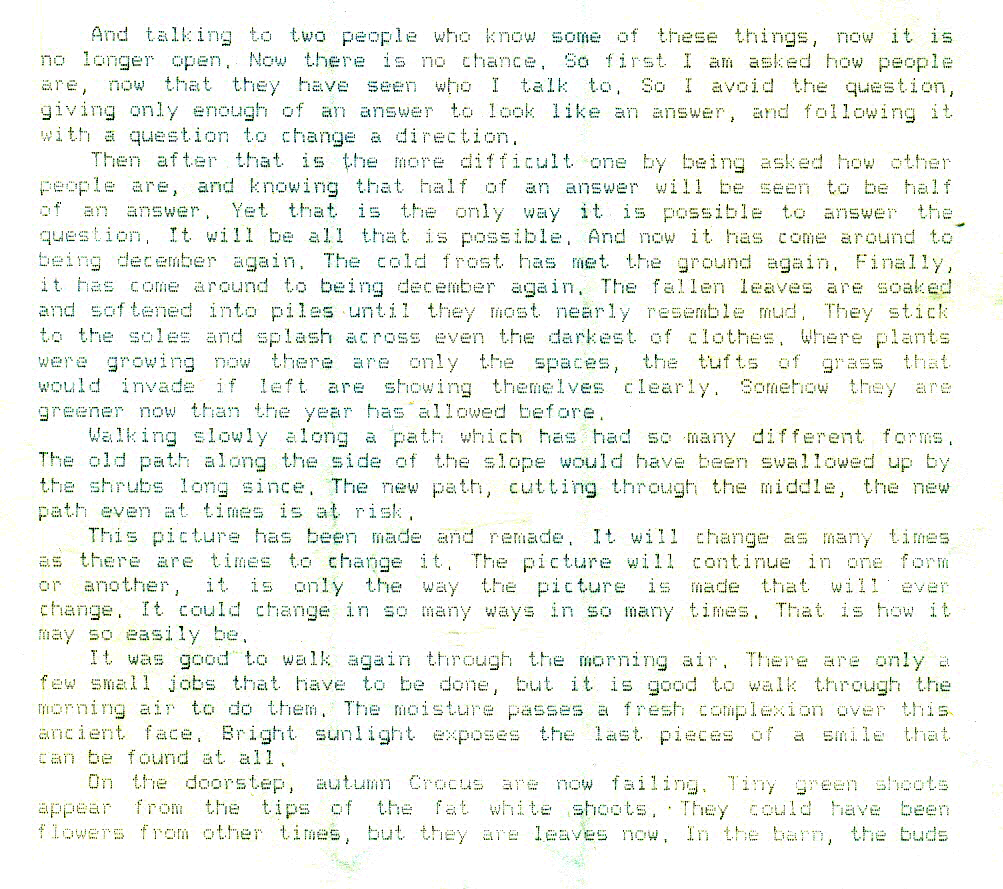 And talking to two people who know some of these things, now it is
no longer open. Now there is no chance. So first I am asked how people
are, now that they have seen who I talk to. So I avoid the question,
giving only enough of an answer to look like an answer, and following it
with a question to change a direction.
Then after that is the more difficult one by being asked how other
people are, and knowing that half of an answer will be seen to be half
of an answer. Yet that is the only way it is possible to answer the
question. It will be all that is possible. And now it has come around to
being december again. The cold frost has met the ground again. Finally,
it has come around to being december again. The fallen leaves are soaked
and softened into piles until they most nearly resemble mud. They stick
to the soles and splash across even the darkest of clothes. Where plants
were growing now there are only the spaces, the tufts of grass that
would invade if left are showing themelves clearly. Somehow they are
greener now than the year has allowed before.
Walking slowly along a path which has had so many different forms.
The old path along the side of the slope would have been swallowed up by
the shrubs long since. The new path, cutting through the middle, the new
path even at times is at risk.
This picture has been made and remade. It will change as many times
as there are times to change it. The picture will continue in one form
or another, it is only the way the picture is made that will ever
change. It could change in so many ways in so many times. That is how it
may so easily be.
It was good to walk again through the morning air. There are only a
few small jobs that have to be done, but it is good to walk through the
morning air to do them. The moisture passes a fresh complexion over this
ancient face. Bright sunlight exposes the last pieces of a smile that
can be found at all.
On the doorstep, autumn Crocus are now failing. Tiny green shoots
appear from the tips of the fat white shoots. They could have been
flowers from other times, but they are leaves now. In the barn, the buds